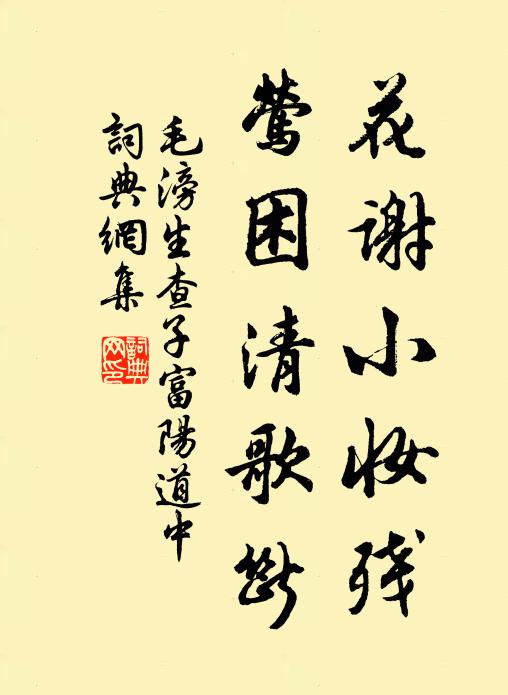 花谢小妆残
莺困清歌断
毛滂生查子富陽道中
詞典網集
詞典网印